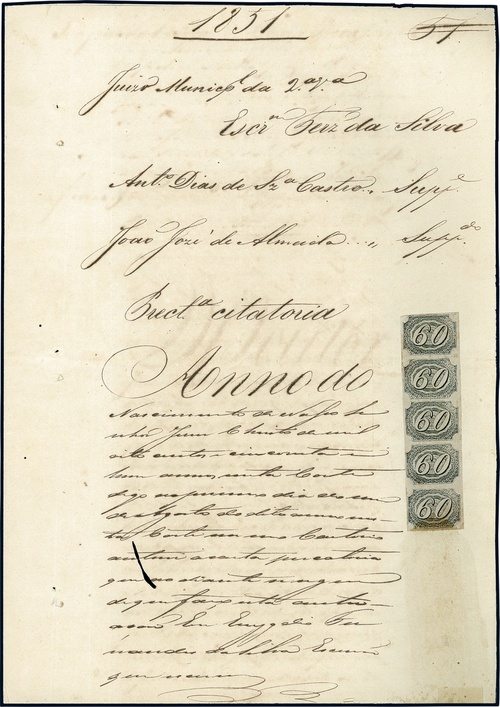 1851
51
Juizo Municipl da 2ª vª
Escrm Ferz da Silva
Anto Dias de Sza Castro, Suppe
João José de Almeida Suppdo
Precta citatoria
Anno do
Nascimento de Nosso Se
nhor Jesus Christo de mil
oito centos e cincoenta e
hum annos, nesta Corte
digo no primeiro dia do mez
de Agosto do dito anno nes
ta Corte em meu Cartorio
autuei a carta precatoria
que ao diante segue
de que faço esta autu
ação Eu Emygdio Fer
nandes da Silva Escrivão
que escrevi
60
60
60
60
60